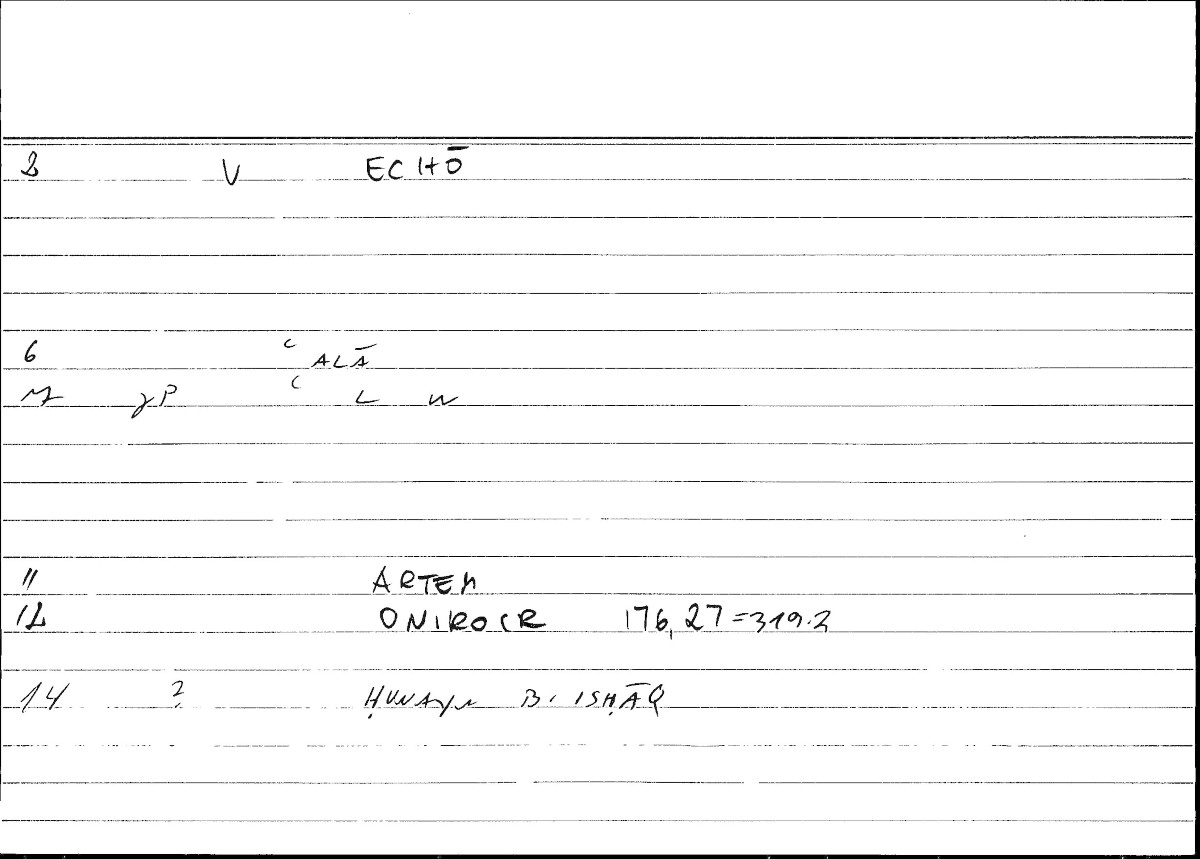 2 V ECHŌ
6 ʿALĀ
gP ʿ L W
11 ARTEM
12 ONIROCR 176,27=319.2
14 ? ḤUNAYN B. ISḤĀQ